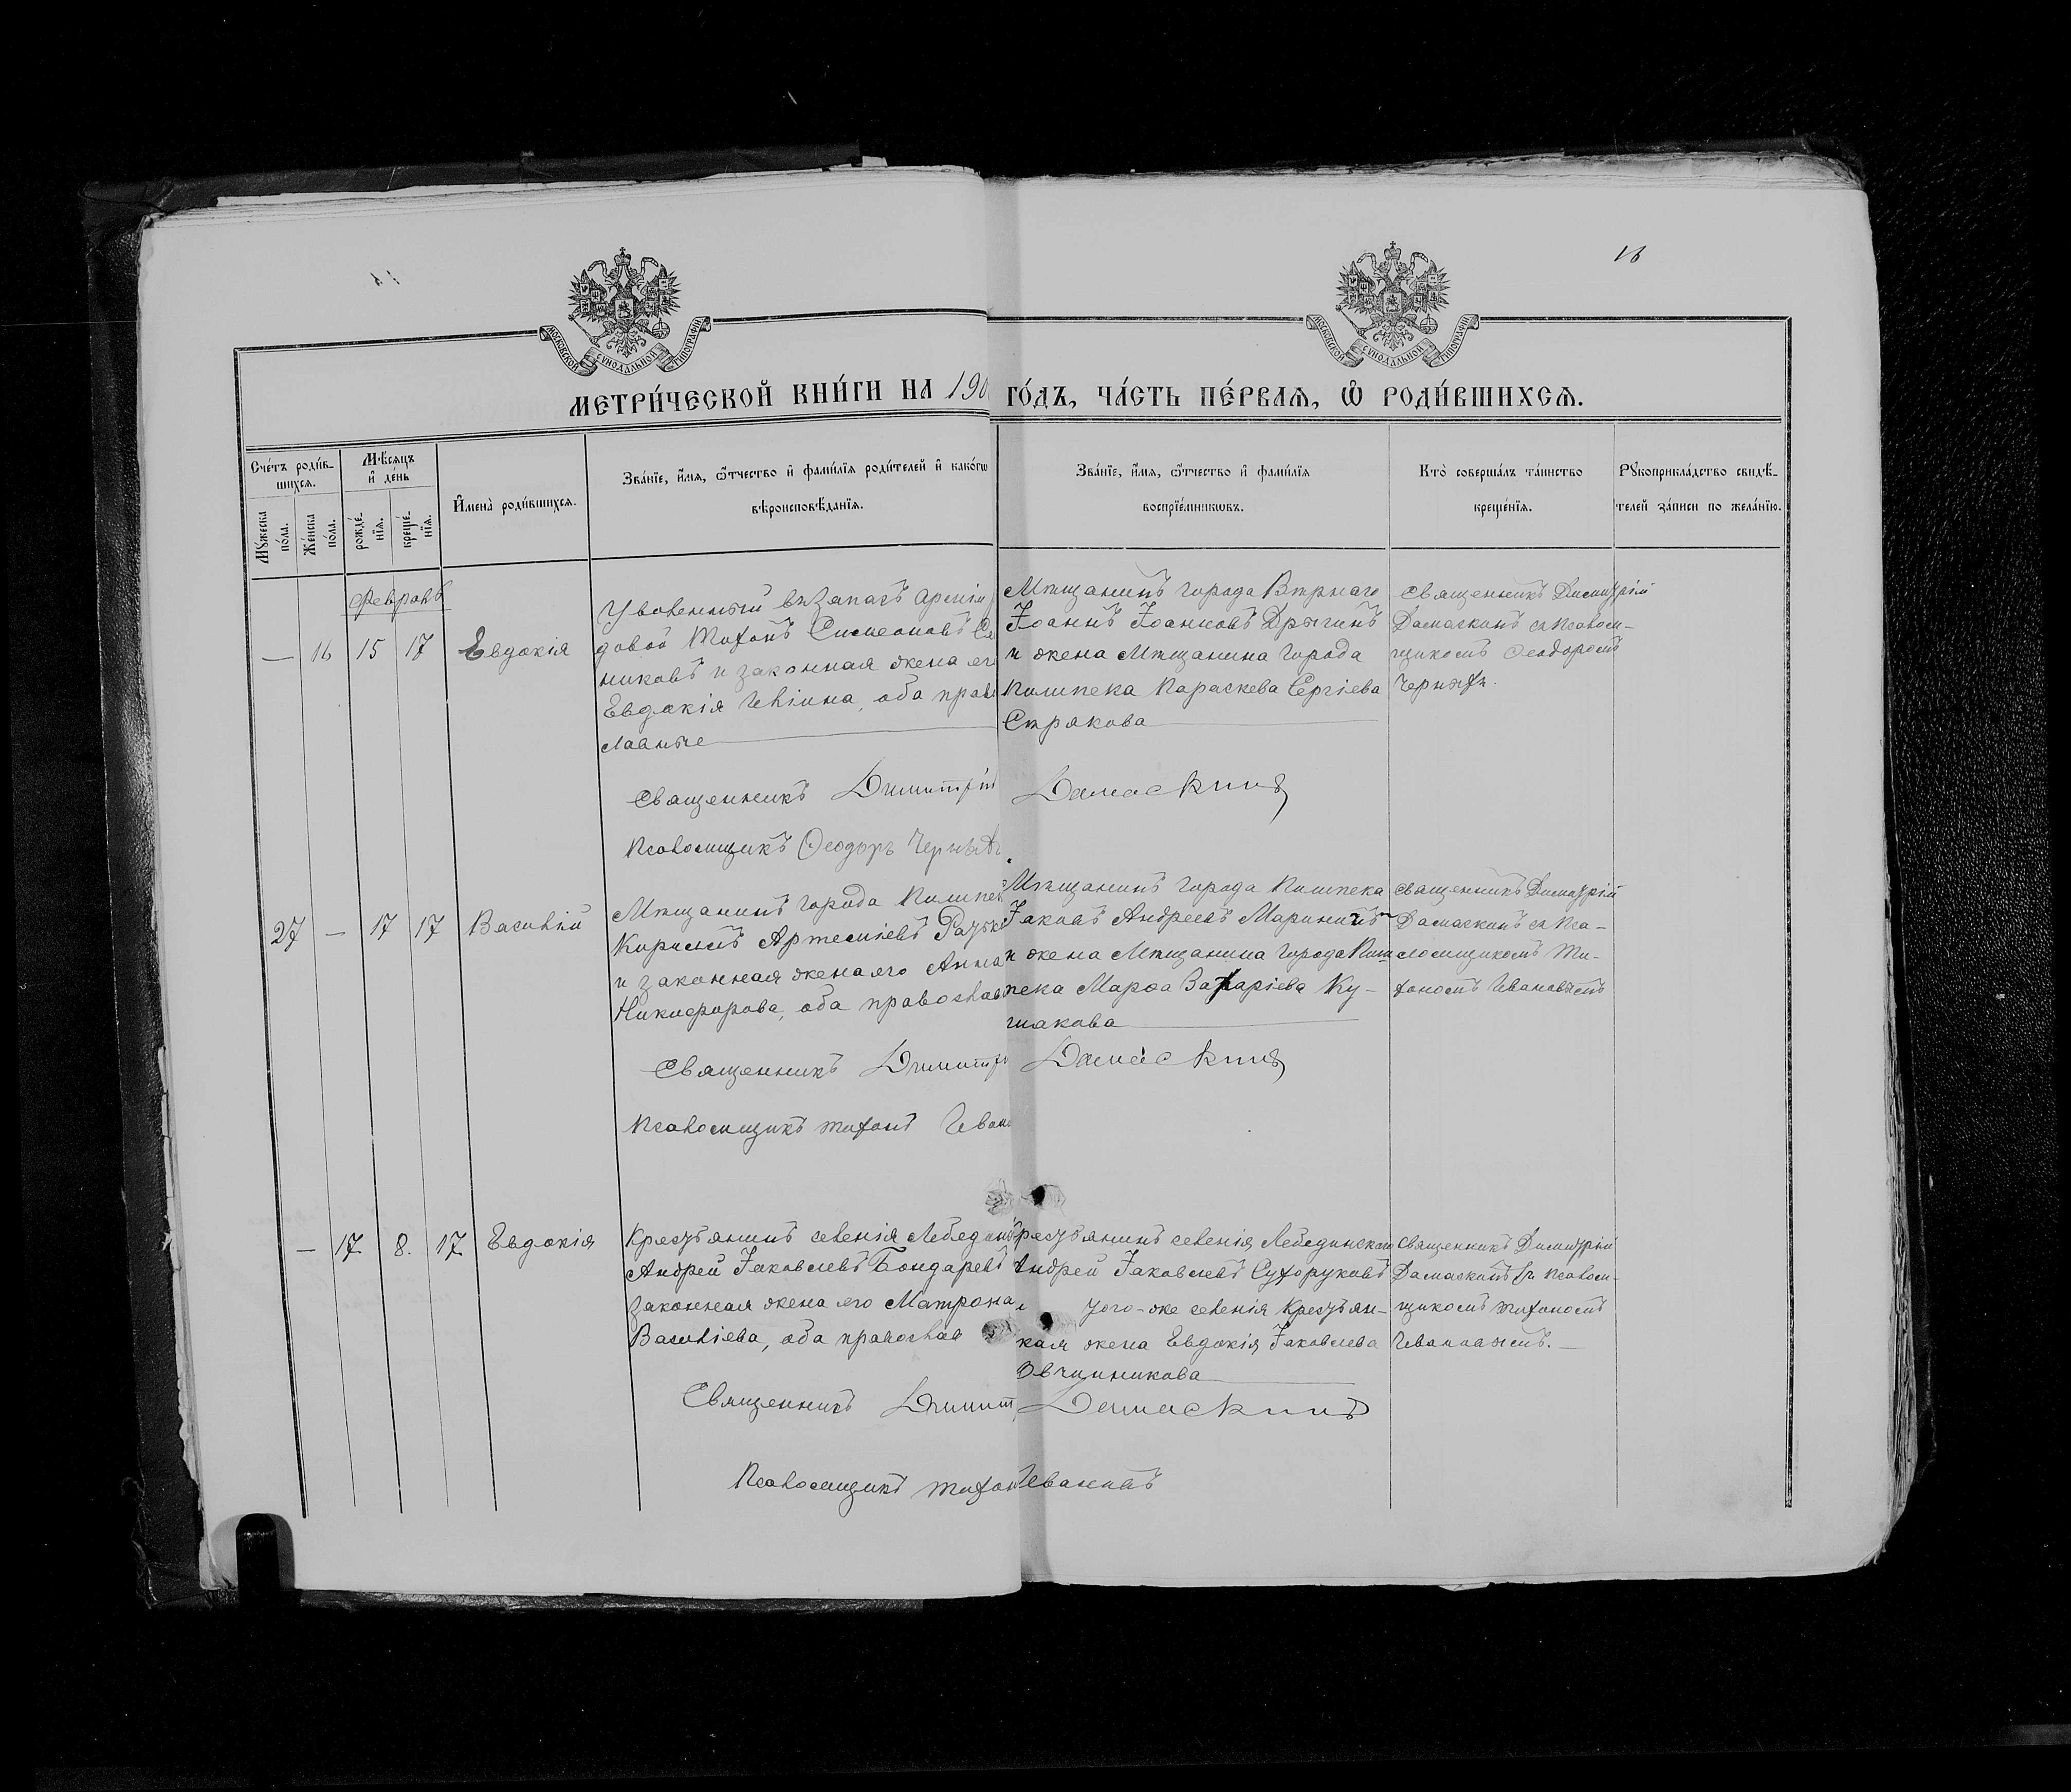 16
МОСКОВСКОЙ СѴНОДАЛЬНОЙ ТИПОГРАФІИ
МОСКОВСКОЙ СѴНОДАЛЬНОЙ ТИПОГРАФІИ
МЕТРИ́ЧЕСКОЙ КНИ́ГИ НА 190
ГО́ДЪ, ЧА́СТЬ ПЕ́РВАѦ, Ѽ РОДИ́ВШИХСѦ.
Сче́тъ роди́в-
шихсѧ.
Мꙋ́жеска
по́ла.
Же́нска
по́ла.
Мѣ́сѧцъ
и҆ де́нь
рожде́-
нїѧ.
креще́-
нїѧ.
И҆мена̀ роди́вшихсѧ.
Зва́нїе, и҆́мѧ, ѻ҆́тчество и҆ фами́лїѧ роди́телей и҆ како́гѡ
вѣроисповѣ́данїѧ.
Зва́нїе, и҆́мѧ, ѻ҆́тчество и҆ фами́лїѧ
воспрїе́мникѡвъ.
Кто̀ соверша́лъ та́инство
креще́нїѧ.
Рꙋкоприкла́дство свидѣ́-
телей за́писи по жела́нїю.
Февраль
— 16 15 17 Евдокія
Уволенный въ запасъ арміи
довой Тихонъ Симеоновъ
никовъ и законная жена его
Евдокія Ильина, оба право
славные
Мѣщанинъ города Вѣрнаго
Іоаннъ Іоанновъ Дрыгинъ
и жена Мѣщанина города
Пишпека Параскева Сергіева
Стрякова
Священникъ Димитрій
Дамаскинъ съ Псалом-
щикомъ Ѳеодоромъ
Черныхъ.
Священникъ Димитрій Дамаскинъ
Псаломщикъ Ѳеодоръ Черныхъ
27 — 17 17 Василій
Мѣщанинъ города Пишпек
Кириллъ Артеміевъ
и законная жена его Анна
Никифорова, оба православ
Мѣщанинъ города Пишпека
Іаковъ Андреевъ Марининъ
и жена Мѣщанина города Пиш
пека Марѳа Захаріева Ку-
шакова
Священникъ Димитрій
Дамаскинъ съ Пса-
ломщикомъ Ти-
хономъ Ивановымъ
Священникъ Димитрі Дамаскинъ
Псаломщикъ Тихонъ Ивано
— 17 8. 17 Евдокія
Крестьянинъ селенія Лебединс
Андрей Іаковлевъ Бондаревъ
законная жена его Матрона
Василіева, оба православ
рестьянинъ селенія Лебединскаго
Андрей Іаковлевъ Сухоруковъ
и того-же селенія Крестьян-
кая жена Евдокія Іаковлева
Овчинникова
Священникъ Димитрій
Дамаскинъ съ Псалом-
щикомъ Тихономъ
Ивановымъ. —
Священникъ Димит Дамаскинъ
Псаломщикъ Тихон Ивановъ